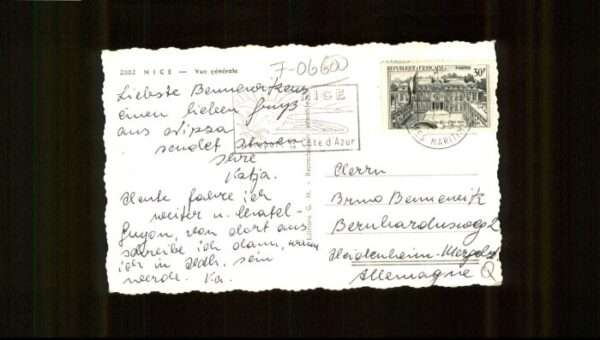 2002 NICE — Vue générale
7-06600
Liebste Bennewitzens
einen lieben Gruß
aus Nizza
sendet Ihnen
Ihre
Katja.
Heute fahre ich
weiter n. Chatel-
Guyon, von dort aus
schreibe ich dann, wann
ich in Hdh. sein
werde. Ka.
Côte d'Azur
REPUBLIQUE FRANÇAISE
POSTES 30F
MARITIMES
Herrn
Bruno Bennewitz
Bernhardusweg 2
Heidenheim-Mergelst.
Allemagne